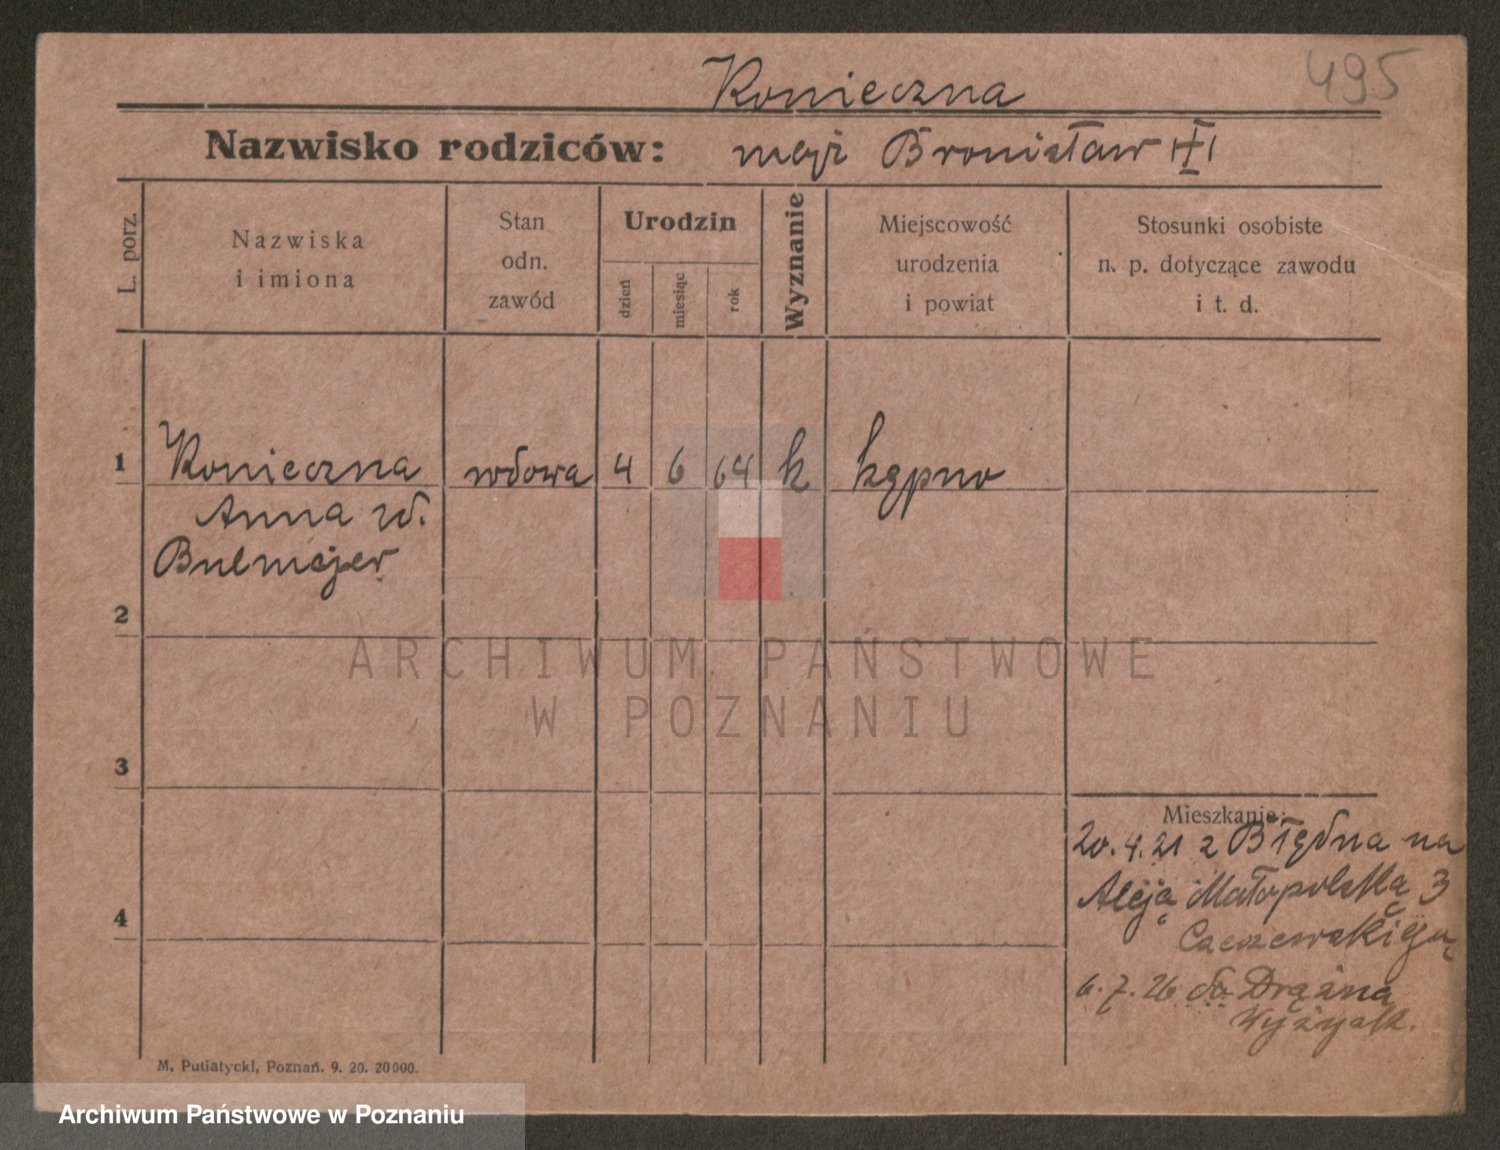 495
Konieczna
Nazwisko rodziców: mąż Bronisław
L. porz.
Nazwiska
i imiona
Stan
odn.
zawód
Urodzin
dzień
miesiąc
rok
Wyznanie
Miejscowość
urodzenia
i powiat
Stosunki osobiste
n. p. dotyczące zawodu
i t. d.
1
Konieczna wdowa 4 6 64 k Kępno
Anna w.
2
3
Mieszkanie:
20.4.21 z Błędna na
Aleją Małopolską 3
4
6.7.26 do
Wyżysk.
M. Putiatycki, Poznań. 9. 20. 20000.
ARCHIWUM PAŃSTWOWE
W POZNANIU
Archiwum Państwowe w Poznaniu